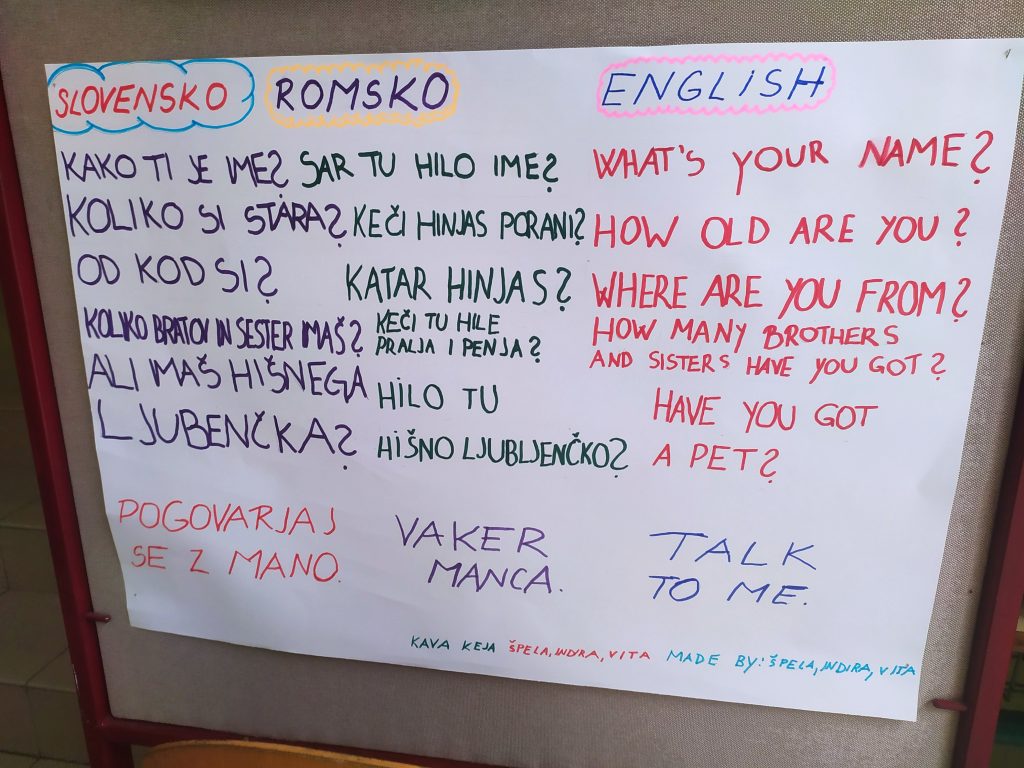 SLOVENSKO ROMSKO ENGLISH
KAKO TI JE IME? SAR TU HILO IME? WHAT'S YOUR NAME?
KOLIKO SI STARA? KEČI HINJAS PORANI? HOW OLD ARE YOU?
OD KOD SI? KATAR HINJAS? WHERE ARE YOU FROM?
KOLIKO BRATOV IN SESTER IMAŠ? KEČI TU HILE HOW MANY BROTHERS
PRALJA I PENJA? AND SISTERS HAVE YOU GOT?
ALI IMAŠ HIŠNEGA HILO TU HAVE YOU GOT
LJUBENČKA? HIŠNO LJUBLJENČKO? A PET?
POGOVARJAJ VAKER TALK
SE Z MANO. MANCA. TO ME.
KAVA KEJA ŠPELA, INDIRA, VITA MADE BY: ŠPELA, INDIRA, VITA